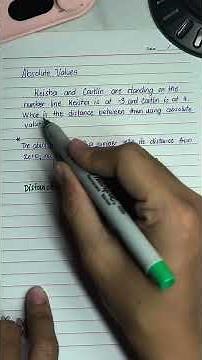 Absolute Values
Keisha and Caitlin are standing on the
number line. Keisha is at -3 and Caitlin is at 4.
What is the distance between them using absolute
value
* The abs number is its distance from
zero,
Distan